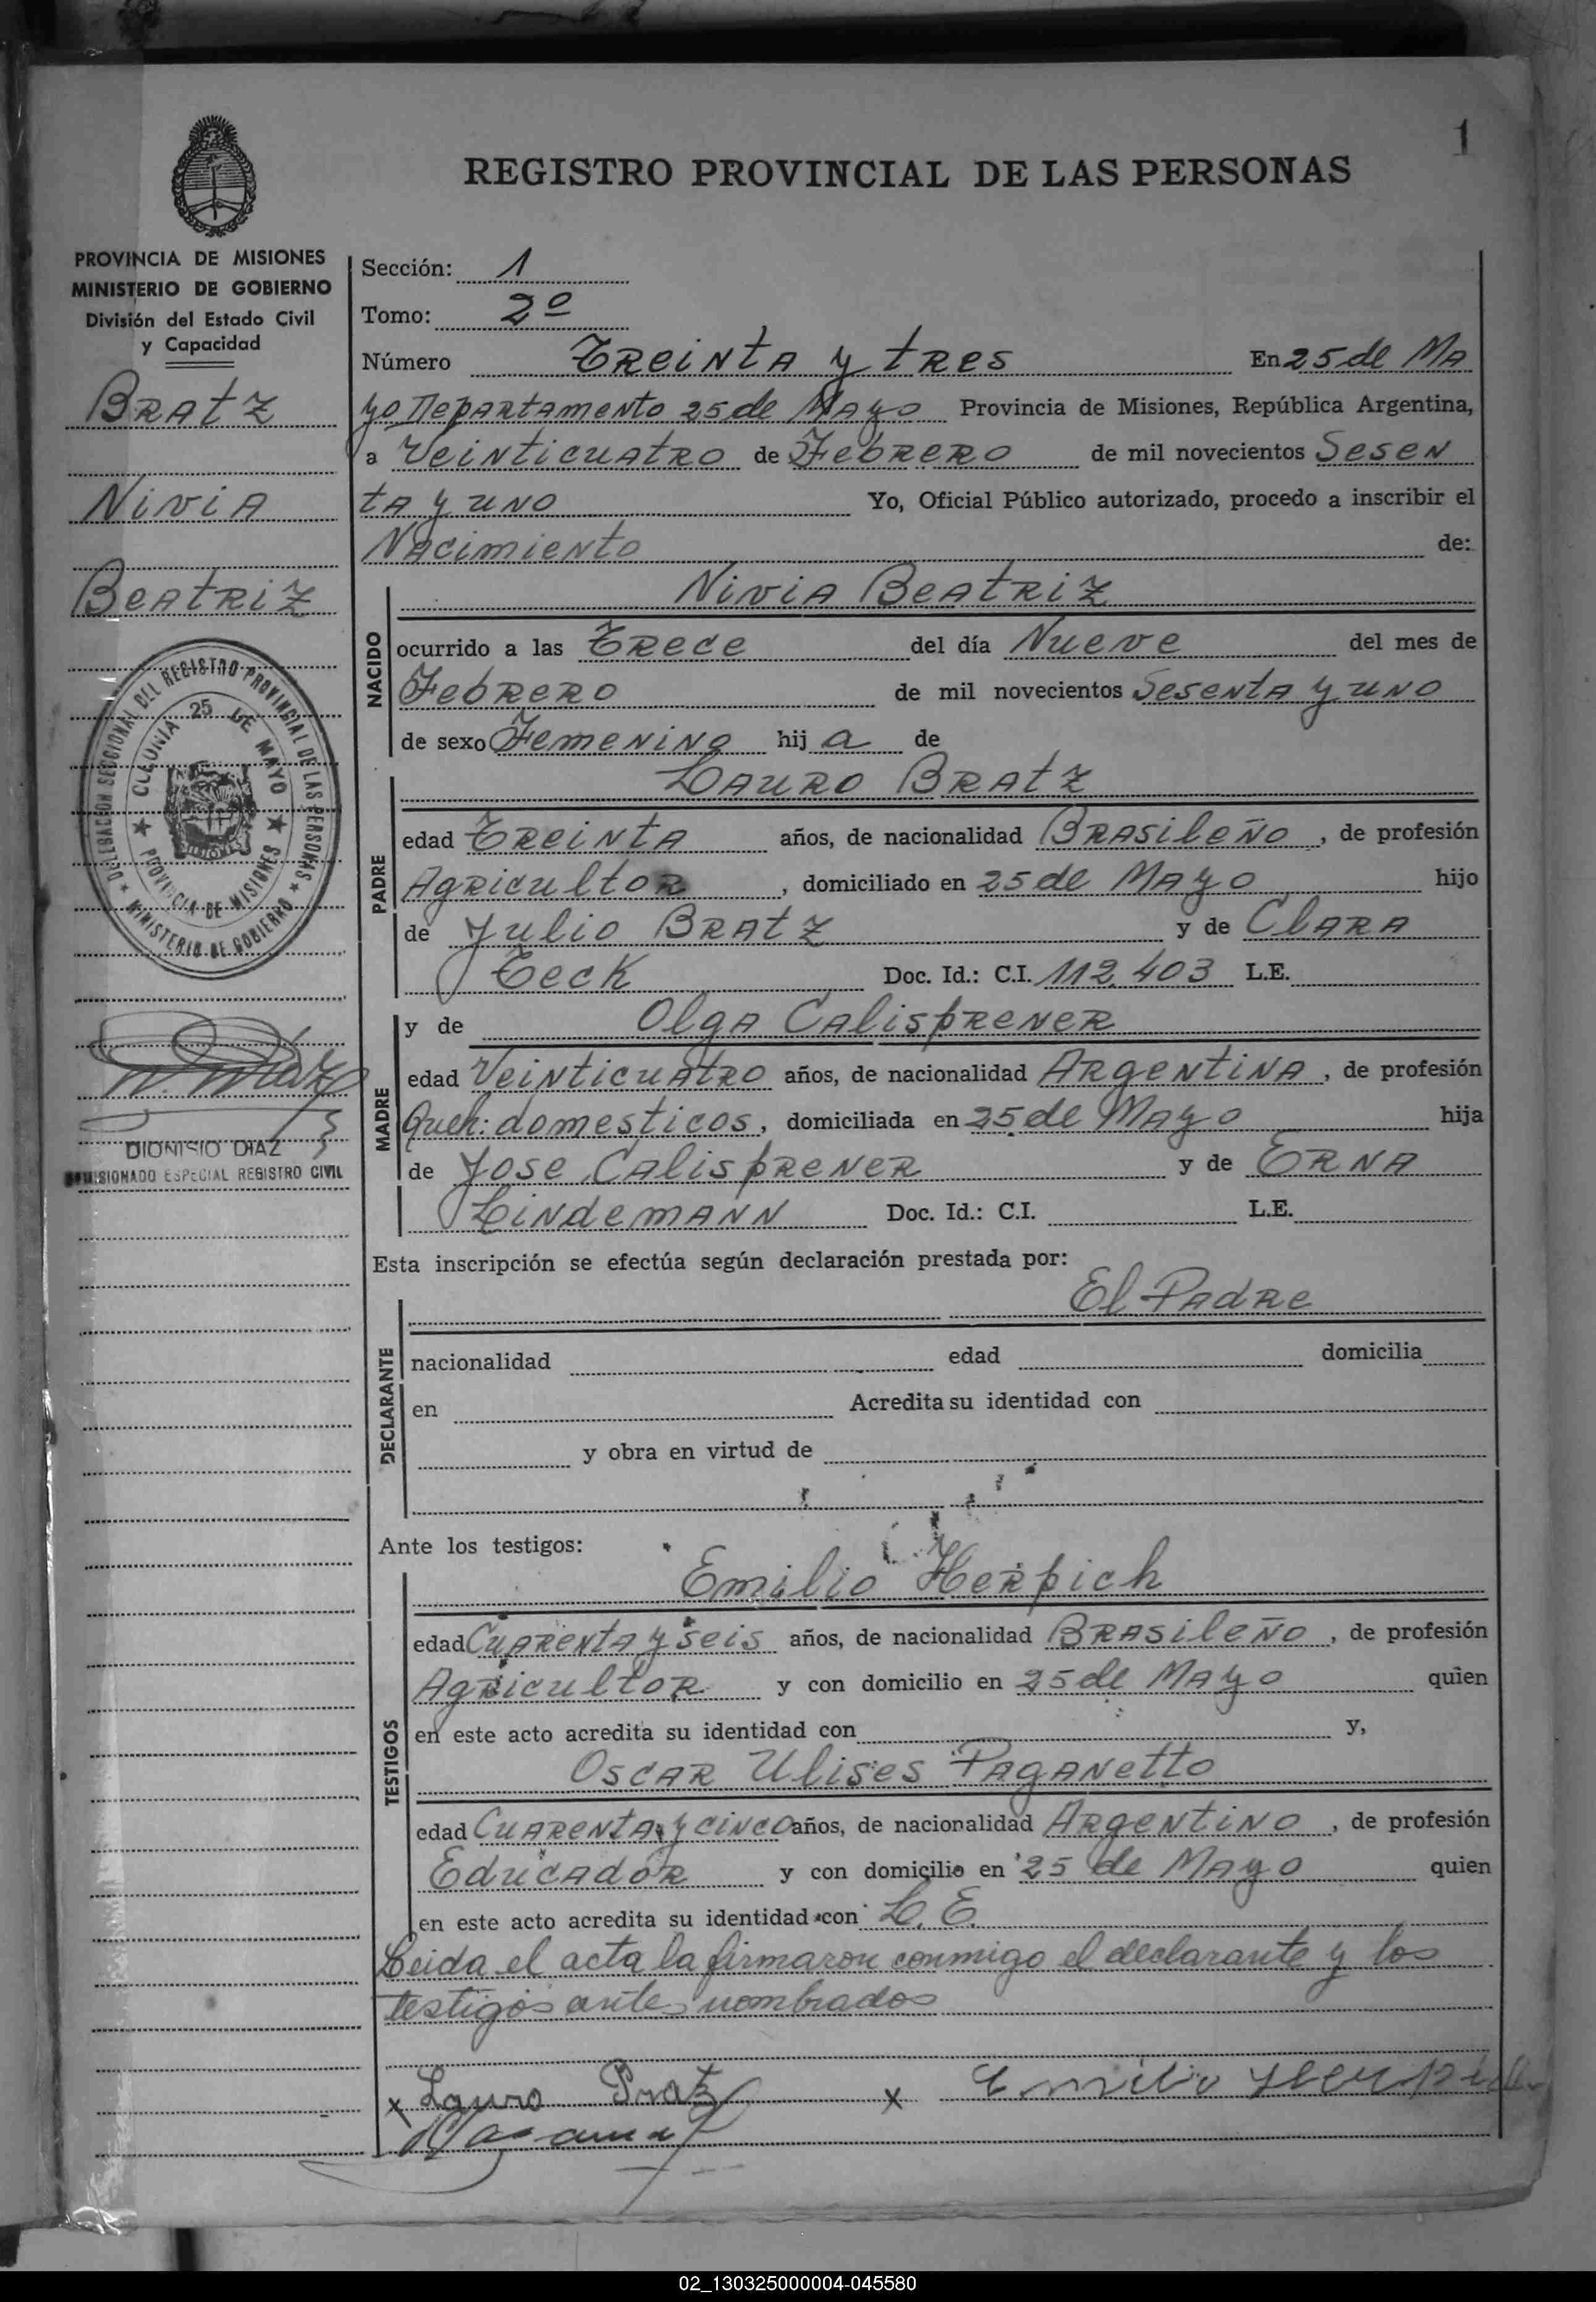 1
REGISTRO PROVINCIAL DE LAS PERSONAS
PROVINCIA DE MISIONES
MINISTERIO DE GOBIERNO
División del Estado Civil
y Capacidad
Bratz
Nivia
Beatriz
DELEGACION SECCIONAL DEL REGISTRO PROVINCIAL DE LAS PERSONAS
★ MINISTERIO DE GOBIERNO ★
COLONIA 25 DE MAYO
★ PROVINCIA DE MISIONES ★
DIONISIO DIAZ
COMISIONADO ESPECIAL REGISTRO CIVIL
Sección: 1
Tomo: 2º
Número Treinta y tres En 25 de Ma
yo Departamento 25 de Mayo Provincia de Misiones, República Argentina,
a Veinticuatro de Febrero de mil novecientos Sesen
ta y uno Yo, Oficial Público autorizado, procedo a inscribir el
Nacimiento de:
Nivia Beatriz
NACIDO
ocurrido a las Trece del día Nueve del mes de
Febrero de mil novecientos Sesenta y uno
de sexo Femenino hij a de
Lauro Bratz
PADRE
edad Treinta años, de nacionalidad Brasileño, de profesión
Agricultor, domiciliado en 25 de Mayo hijo
de Julio Bratz y de Clara
Teck Doc. Id.: C.I. 112.403 L.E.
MADRE
y de Olga Calisprener
edad Veinticuatro años, de nacionalidad Argentina, de profesión
Queh: domesticos, domiciliada en 25 de Mayo hija
de Jose Calisprener y de Erna
Lindemann Doc. Id.: C.I. L.E.
Esta inscripción se efectúa según declaración prestada por:
El Padre
DECLARANTE
nacionalidad edad domicilia
en Acredita su identidad con
y obra en virtud de
Ante los testigos:
Emilio Herpich
TESTIGOS
edad Cuarenta y seis años, de nacionalidad Brasileño, de profesión
Agricultor y con domicilio en 25 de Mayo quien
en este acto acredita su identidad con y,
Oscar Ulises Paganetto
edad Cuarenta y cinco años, de nacionalidad Argentino, de profesión
Educador y con domicilio en 25 de Mayo quien
en este acto acredita su identidad con L.E.
Leida el acta la firmaron conmigo el declarante y los
testigos antes nombrados
x Lauro Bratz x Emilio Herpich
02_130325000004-045580